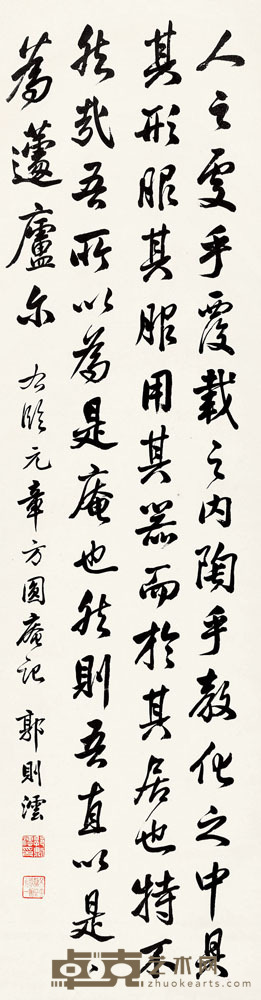 人之處乎覆載之内陶乎教化之中具
其形服其服用其器而於其居也特不
然哉吾所以為是庵也然則吾直以是
為蘧廬尔
右臨元章方圓庵記 郭則澐
卓克艺术网
zhuokearts.com